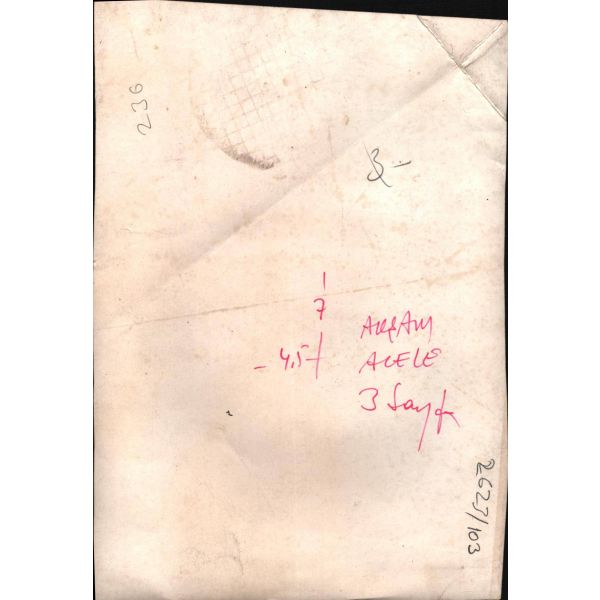 236
3-
7
- 4,5 -
AKŞAM
ACELE
3 Sayfa
2623/103